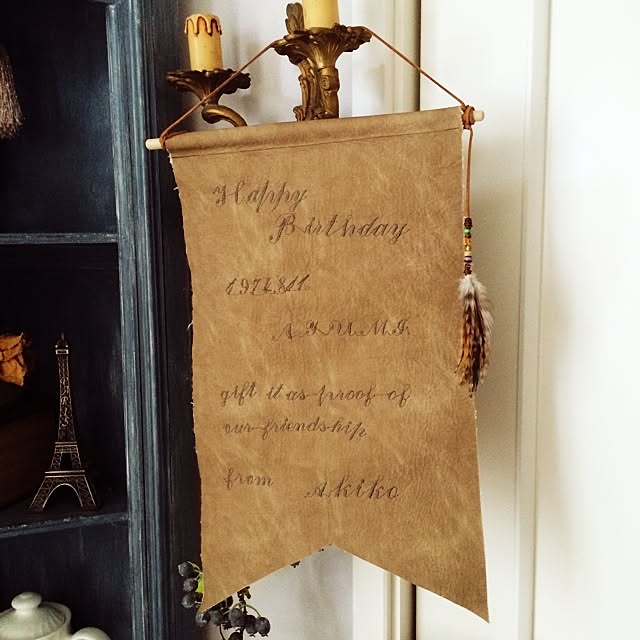 Happy
Birthday
1974.8.11
AYUMI
gift it as proof of
our friendship
from Akiko